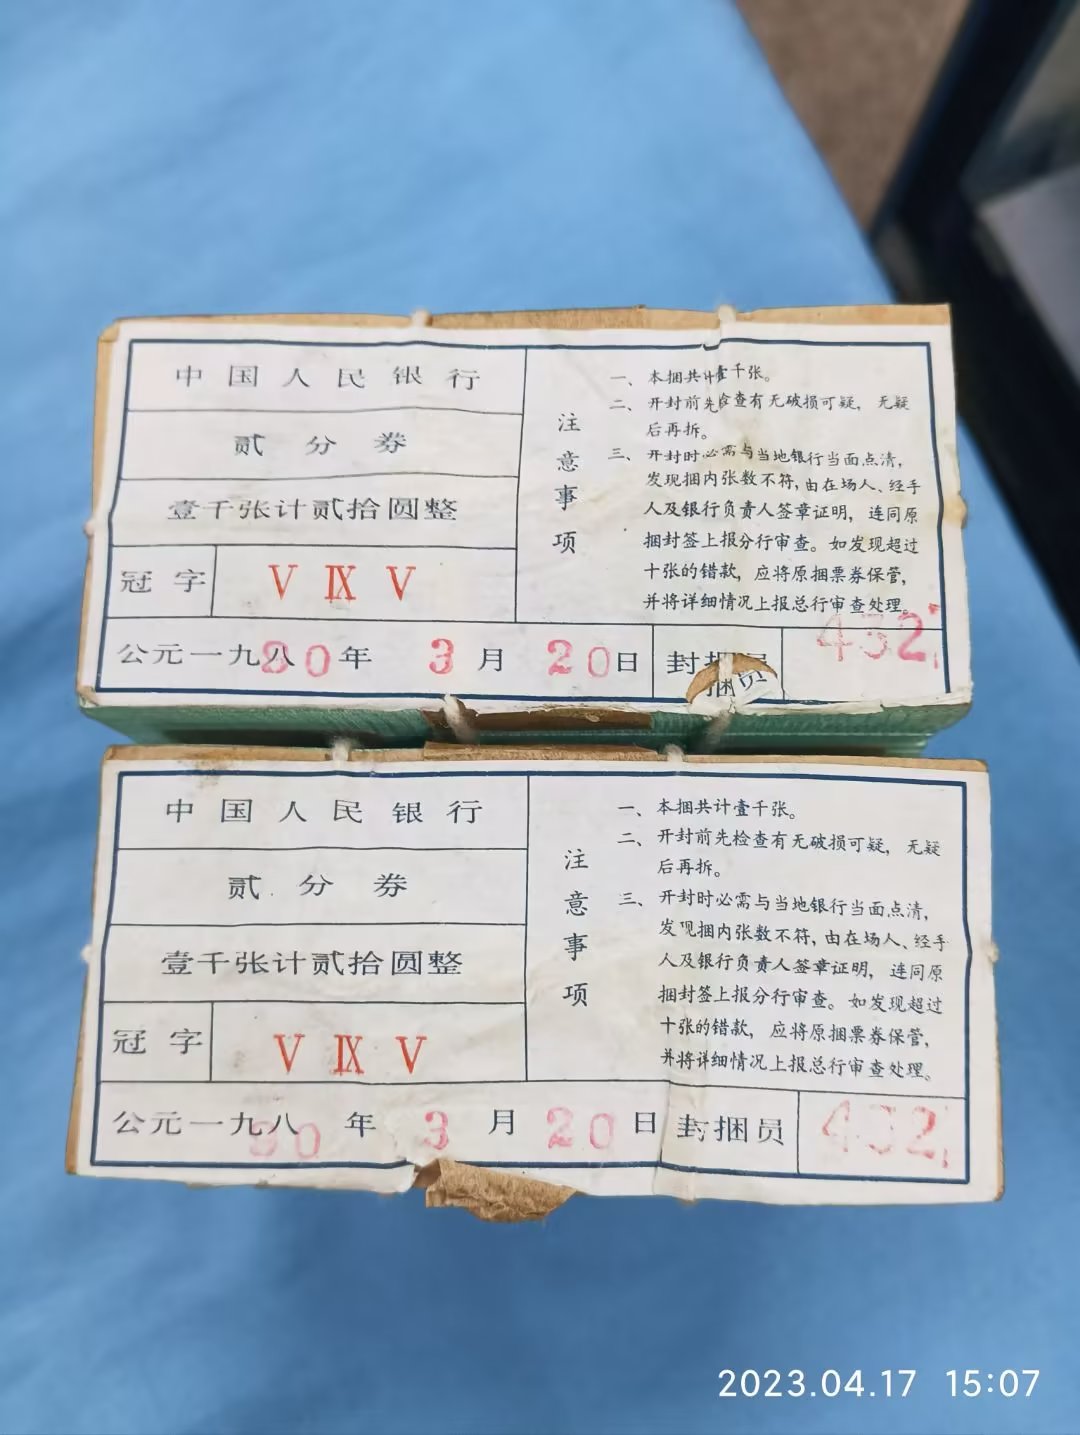 中国人民银行
贰分券
壹千张计贰拾圆整
冠字 V IX V
公元一九八90年 3月 20日 封捆员 432
注意事项
一、本捆共计壹千张。
二、开封前先检查有无破损可疑，无疑
后再拆。
三、开封时必需与当地银行当面点清，
发现捆内张数不符，由在场人、经手
人及银行负责人签章证明，连同原
捆封签上报分行审查。如发现超过
十张的错款，应将原捆票券保管，
并将详细情况上报总行审查处理。
中国人民银行
贰分券
壹千张计贰拾圆整
冠字 V IX V
公元一九八90年 3月 20日 封捆员 432
注意事项
一、本捆共计壹千张。
二、开封前先检查有无破损可疑，无疑
后再拆。
三、开封时必需与当地银行当面点清，
发现捆内张数不符，由在场人、经手
人及银行负责人签章证明，连同原
捆封签上报分行审查。如发现超过
十张的错款，应将原捆票券保管，
并将详细情况上报总行审查处理。
2023.04.17 15:07